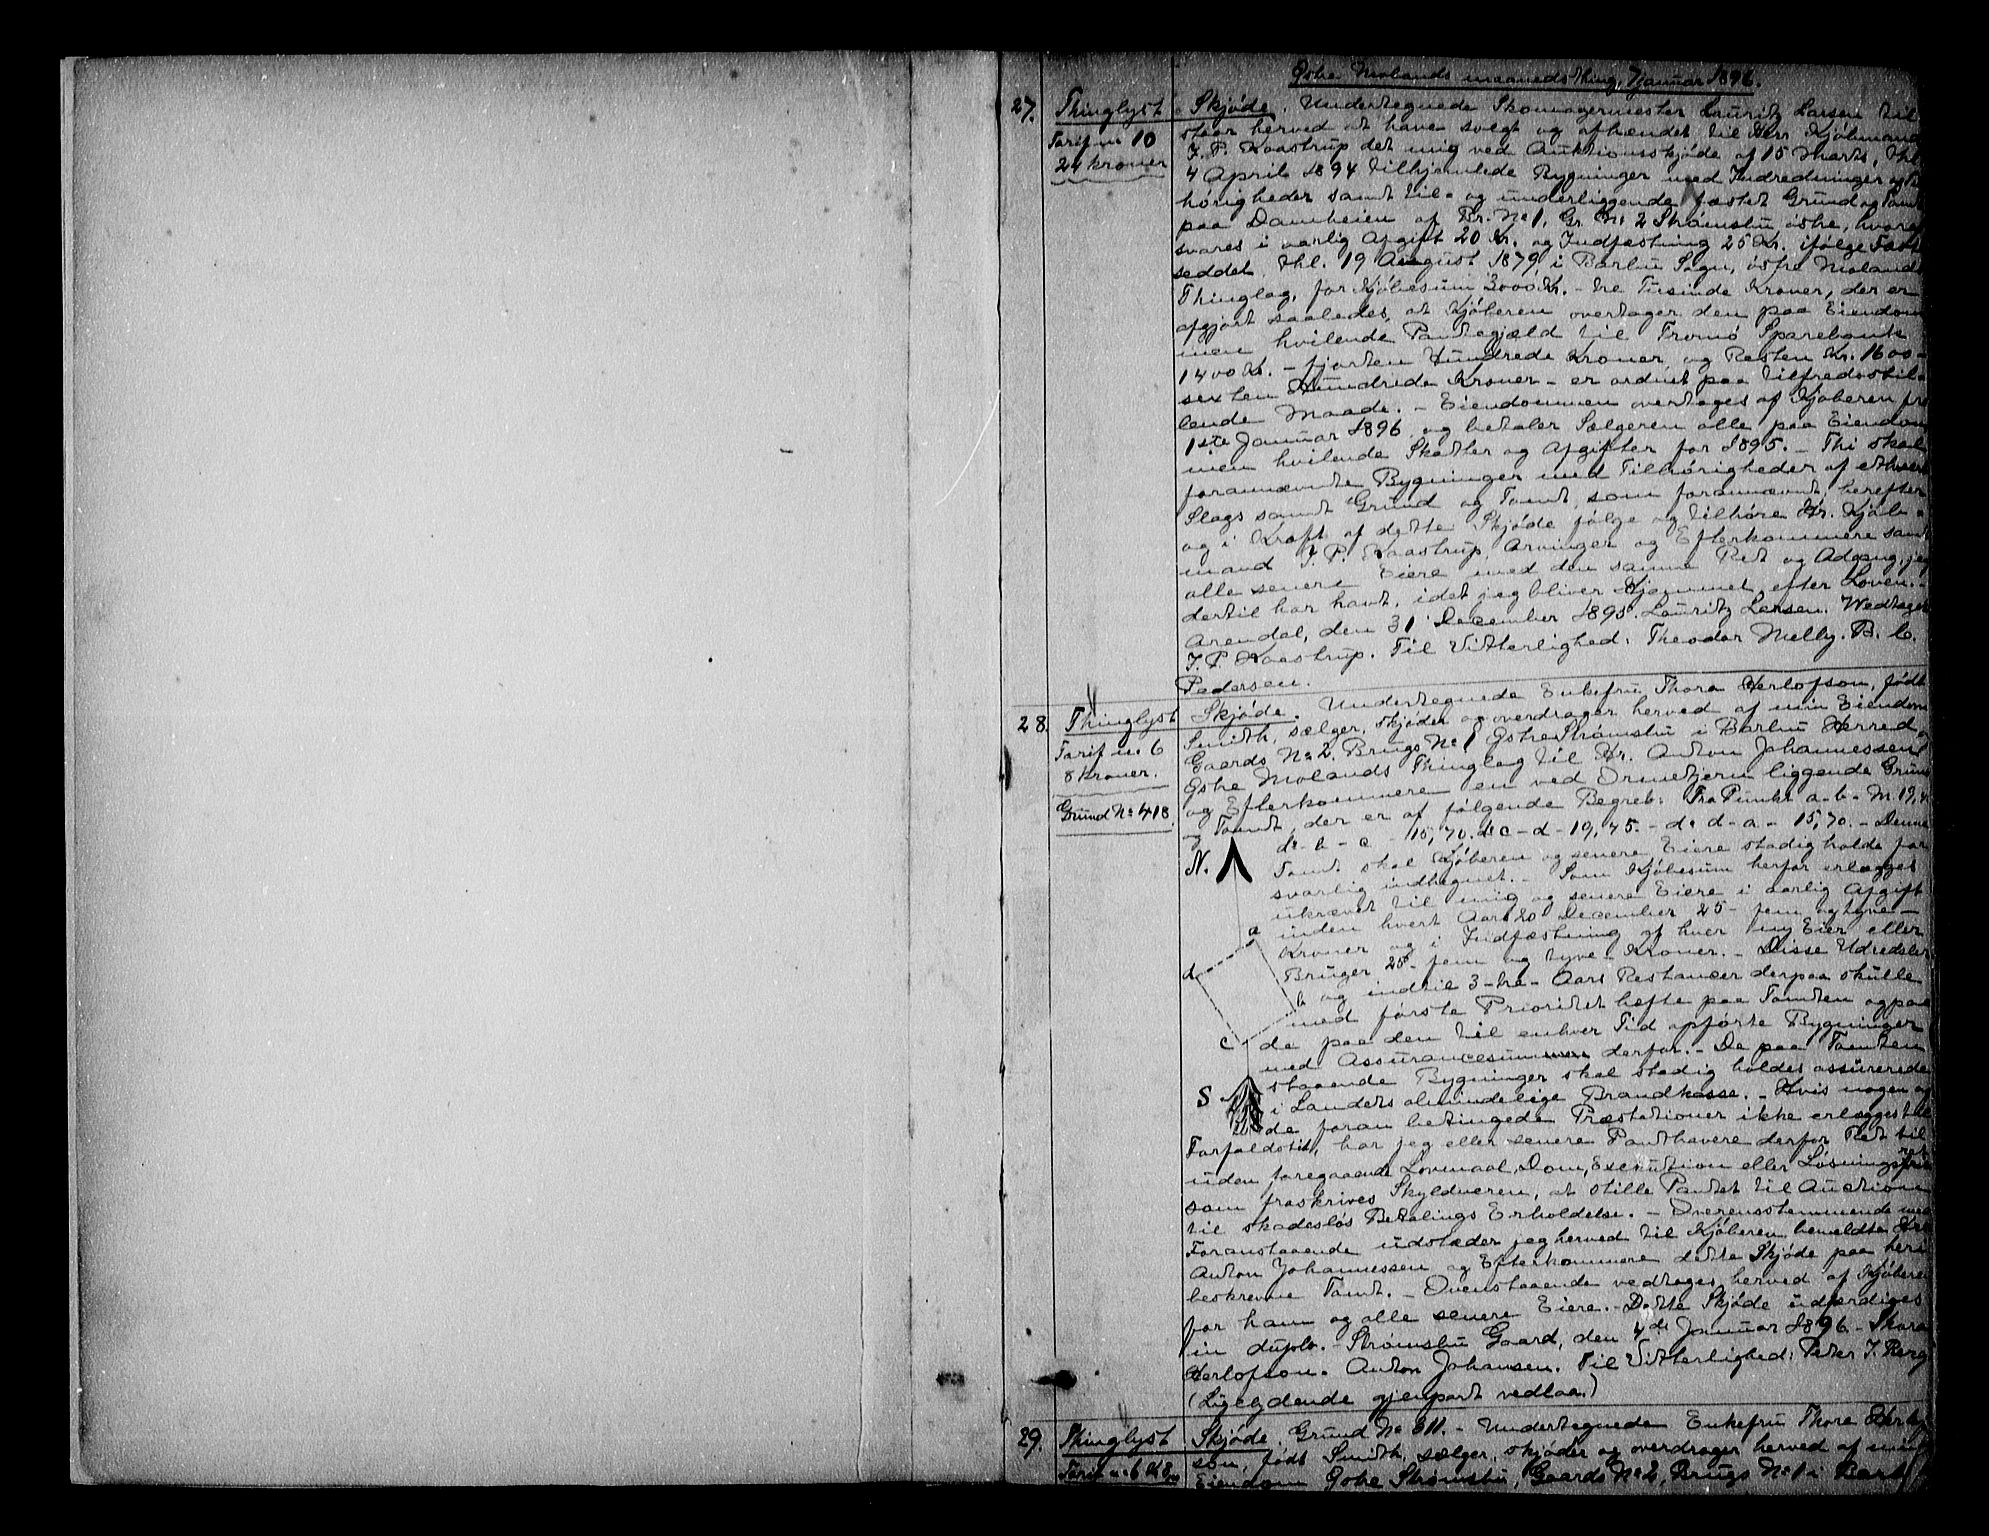 Østre Molands maanedsthing, 7 januar 1896.
27. Thinglyst Skjøde. Undertegnede Skomagermester Lauritz Larsen til-
Tarif no 10 staar herved at have solgt og afhændet til Herr Kjøbmand
24 kroner J. P. Kaastrup det mig ved Auktionsskjøde af 15 Marts, thl.
4 April 1894 tilhjemlede Bygninger med Indredninger og Til
hørigheder samt til- og underliggende fæstet Grund og Tomt
paa Damheien af Br. No 1, Gr. No 2 Strømsbu østre, hvoraf
svares i aarlig Afgift 20 Kr. og Indfæstning 25 Kr. ifølge Fæste
seddel, thl. 19 August 1879 i Barbu Sogn, østre Molands
Thinglag, for Kjøbesum 3000 Kr. - tre Tusinde Kroner, der er
afgjort saaledes, at Kjøberen overtager den paa Eiendom
men hvilende Pantegjæld til Tromø Sparebank
1400 Kr. - fjorten Hundrede Kroner, og Resten Kr. 1600 -
sexten Hundrede Kroner - er ordnet paa tilfredsstil-
lende Maade. - Eiendommen overtages af Kjøberen fra
1ste Januar 1896, og betaler Sælgeren alle paa Eiendom
men hvilende Skatter og Afgifter for 1895. - Thi skal
forannævnte Bygninger med Tilhørigheder af ethvert
Slags samt Grund og Tomt, som forannævnt, herefter
og i Kraft af dette Skjøde følge og tilhøre Hr. Kjøb-
mand J. P. Kaastrup, Arvinger og Efterkommere samt
alle senere Eiere med den samme Ret og Adgang, jeg
dertil har havt, idet jeg bliver Hjemmel efter Loven. -
Arendal, den 31 December 1895. Lauritz Larsen. Vedtages
J. P. Kaastrup. Til Vitterlighed: Theodor Melby. B. C.
Pedersen.
28. Thinglyst Skjøde. Undertegnede Enkefru Thora Herlofson, født
Tarif no 6 Smith, sælger, skjøder og overdrager herved af min Eiendom
8 Kroner. Gaards No 2, Brugs No 1 Østre Strømsbu i Barbu Herred,
Grund No 418. Østre Molands Thinglag til Hr. Anton Johannessen
og Efterkommere en ved Ormetjern liggende Grund
og Tomt, der er af følgende Begreb: Fra Punkt a-b- M. 19,
do - b - c - 15,70. do c - d - 19,45. - do d - a - 15,70. - Denne
N. Tomt skal Kjøberen og senere Eiere stadig holde for
svarlig indhegnet. - Som Kjøbesum herfor erlægges
ukrævet til mig og senere Eiere i aarlig Afgift
inden hvert Aars 20 December 25 - fem og tyve -
a Kroner og i Indfæstning af hver ny Eier eller
d Bruger 25 - fem og tyve - Kroner. - Disse Udredsler
b og indtil 3 - tre - Aars Restancer derpaa skulle
med første Prioritet hefte paa Tomten og paa
c de paa den til enhver Tid opførte Bygninger
med Assurancesummen derfor. - De paa Tomten
staaende Bygninger skal stadig holdes assurerede
S i Landets almindelige Brandkasse. - Hvis nogen af
de foran betingede Præstationer ikke erlægges til
Forfaldstid, har jeg eller senere Panthavere derfor Ret til
uden foregaaende Lovmaal, Dom, Exekution eller Løsningsret
som fraskrives Skyldneren, at stille Pantet til Auction
til skadesløs Betalings Erholdelse. - Overensstemmende med
Foranstaaende udsteder jeg herved til Kjøberen bemeldte Hr.
Anton Johannessen og Efterkommere dette Skjøde paa heri
beskrevne Tomt. - Ovenstaaende vedtages herved af Kjøberen
for ham og alle senere Eiere. - Dette Skjøde udfærdiges
in duplo. - Strømsbu Gaard, den 4de Januar 1896. - Thora
Herlofson. Anton Johansen. Til Vitterlighed: Peter J. Berg
(Ligelydende gjenpart vedlaa.)
29. Thinglyst Skjøde, Grund No 311. - Undertegnede Enkefru Thora Herlof
Tarif no 6 Kr 8 son, født Smith, sælger, skjøder og overdrager herved af min
Eiendom Østre Strømsbu, Gaards No 2, Brugs No 1 i Barbu